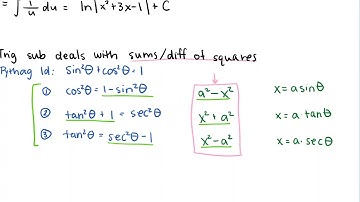 = ∫ 1/u du = ln|x²+3x-1| + C
Trig sub deals with sums/diff of squares
Pythag Id: sin²θ + cos²θ = 1
① cos²θ = 1 - sin²θ a² - x² x = a sinθ
② tan²θ + 1 = sec²θ x² + a² x = a · tanθ
③ tan²θ = sec²θ - 1 x² - a² x = a · secθ